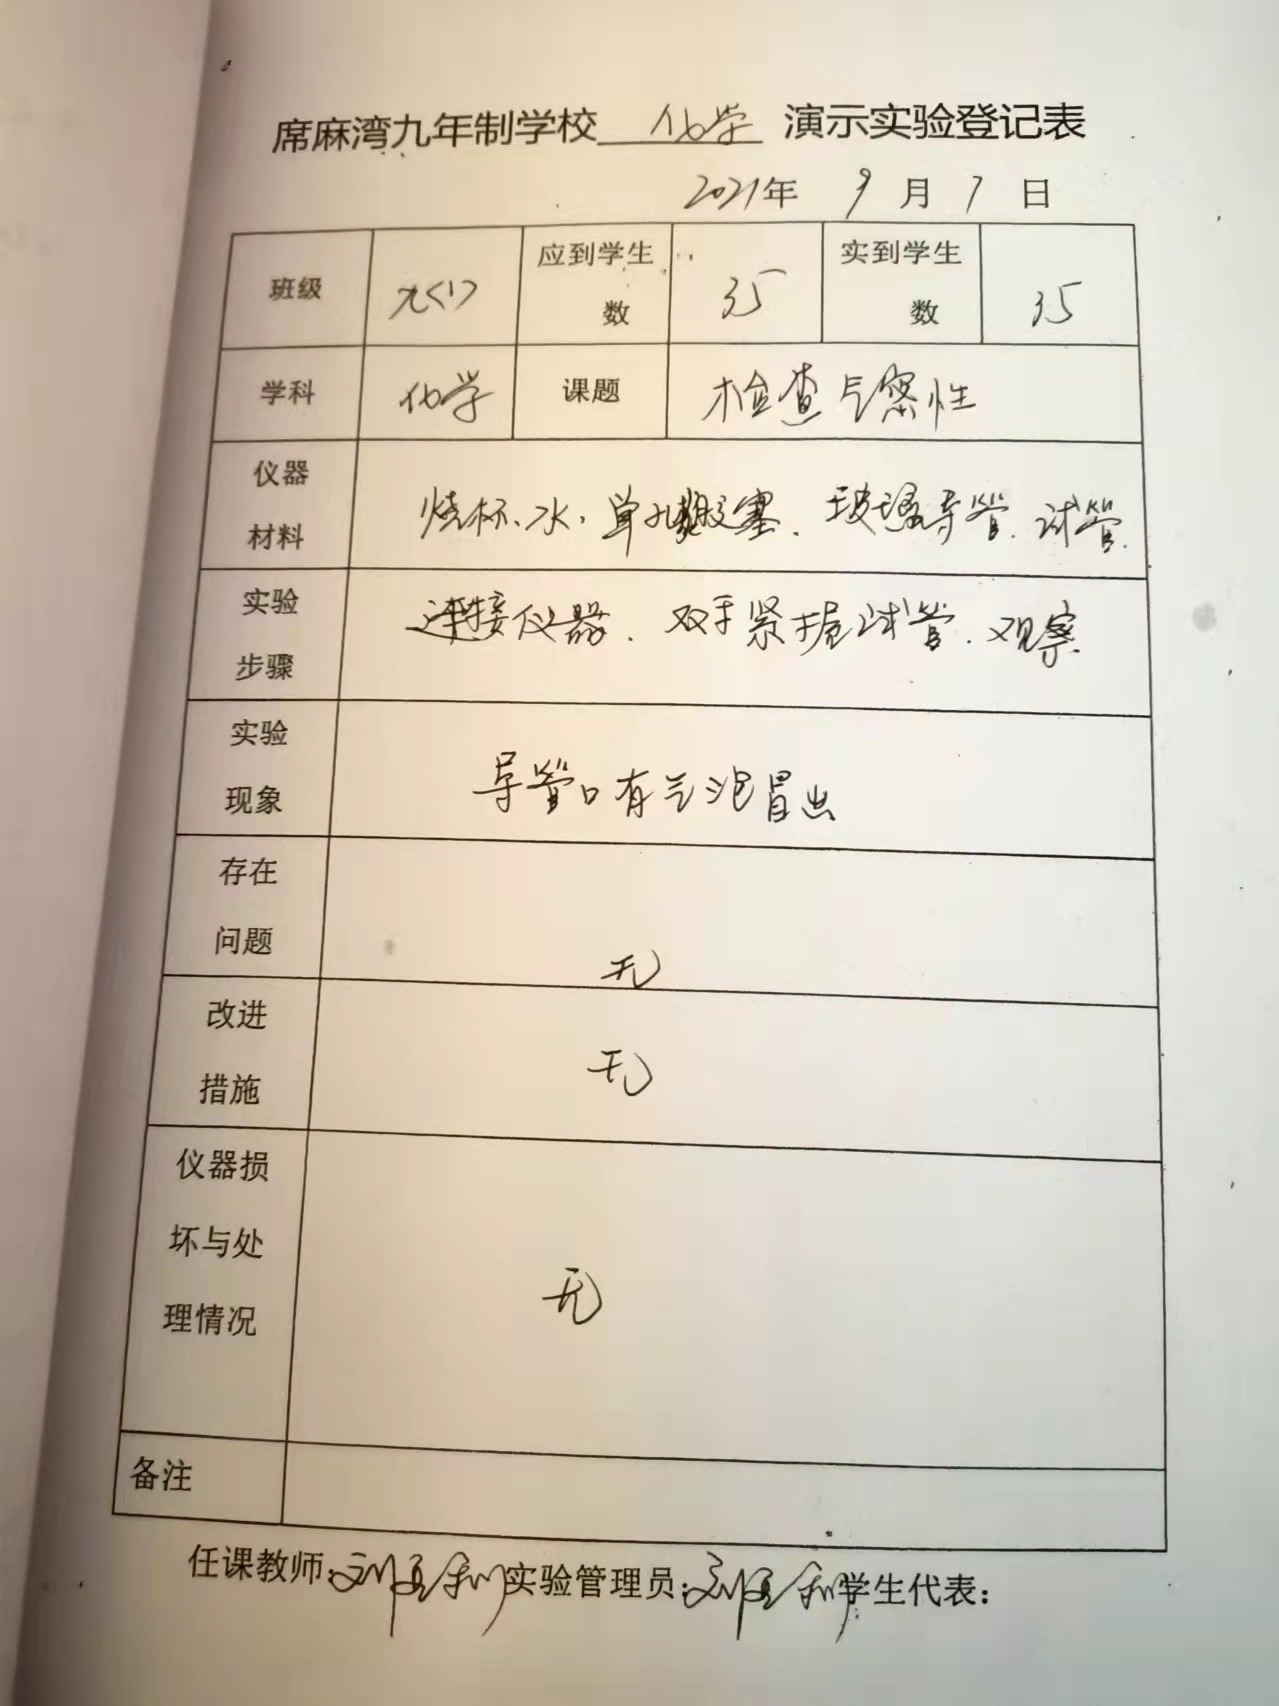 席麻湾九年制学校 化学 演示实验登记表
2021年 9月 7日
班级 九<1> 应到学生数 35 实到学生数 35
学科 化学 课题 检查气密性
仪器材料 烧杯、水、单孔橡胶塞、玻璃导管、试管
实验步骤 连接仪器、双手紧握试管、观察
实验现象 导管口有气泡冒出
存在问题 无
改进措施 无
仪器损坏与处理情况 无
备注
任课教师: 实验管理员: 学生代表: